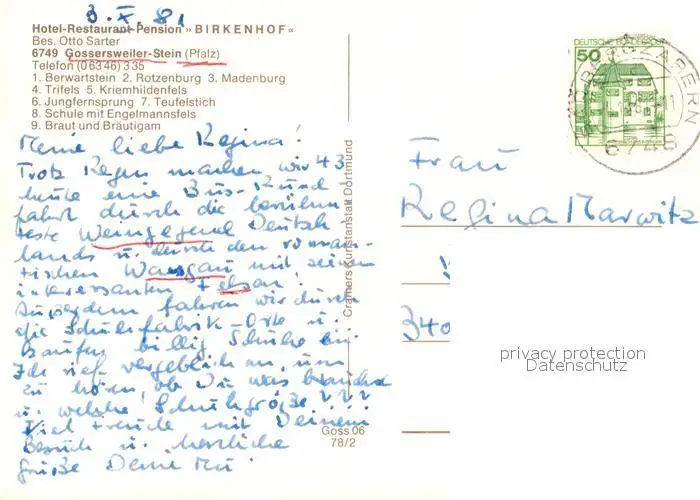 3. X. 81
Hotel-Restaurant-Pension »BIRKENHOF«
Bes. Otto Sarter
6749 Gossersweiler-Stein (Pfalz)
Telefon (0 63 46) 3 35
1. Berwartstein 2. Rotzenburg 3. Madenburg
4. Trifels 5. Kriemhildenfels
6. Jungfernsprung 7. Teufelstich
8. Schule mit Engelmannsfels
9. Braut und Bräutigam
Meine liebe Regina!
Trotz Regen machen wir 43
heute eine Bus-Rund-
fahrt durch die berühm-
teste Weingegend Deutsch
lands u. durch den roman-
tischen Wasgau mit seinen
interessanten Felsen!
Ausserdem fahren wir durch
die Schuhfabrik-Orte u.
kaufen billig Schuhe ein
Ich rief vergeblich an, um
zu hören ob Du was brauchst
u. welche Schuhgröße???
Viel Freude mit Deinem
Besuch u. herzliche
Grüße Deine Mu
Cramers Kunstanstalt Dortmund
Goss 06
78/2
DEUTSCHE BUNDESPOST
50
BERGZABERN
6748
Frau
Regina Marwitz
340
privacy protection
Datenschutz